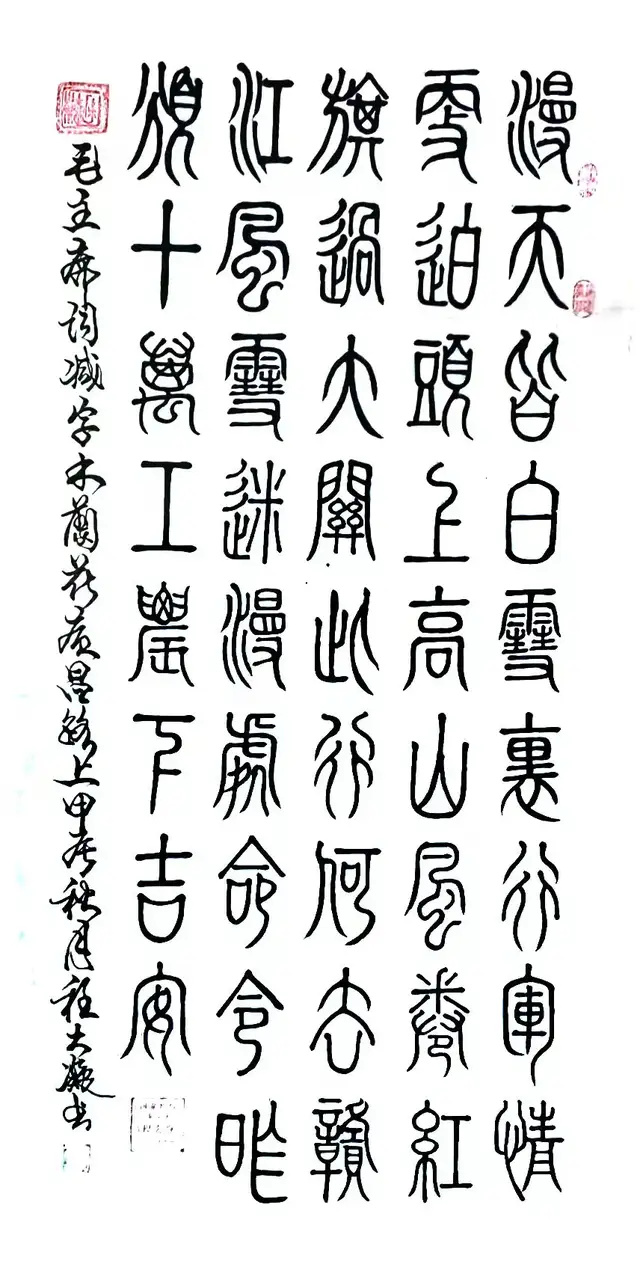 漫天皆白雪裏行軍情
更迫頭上高山風卷紅
旗過大關此行何去贛
江風雪迷漫處命令昨
頒十萬工農下吉安
毛主席词减字木蘭花廣昌路上甲辰秋月程大书